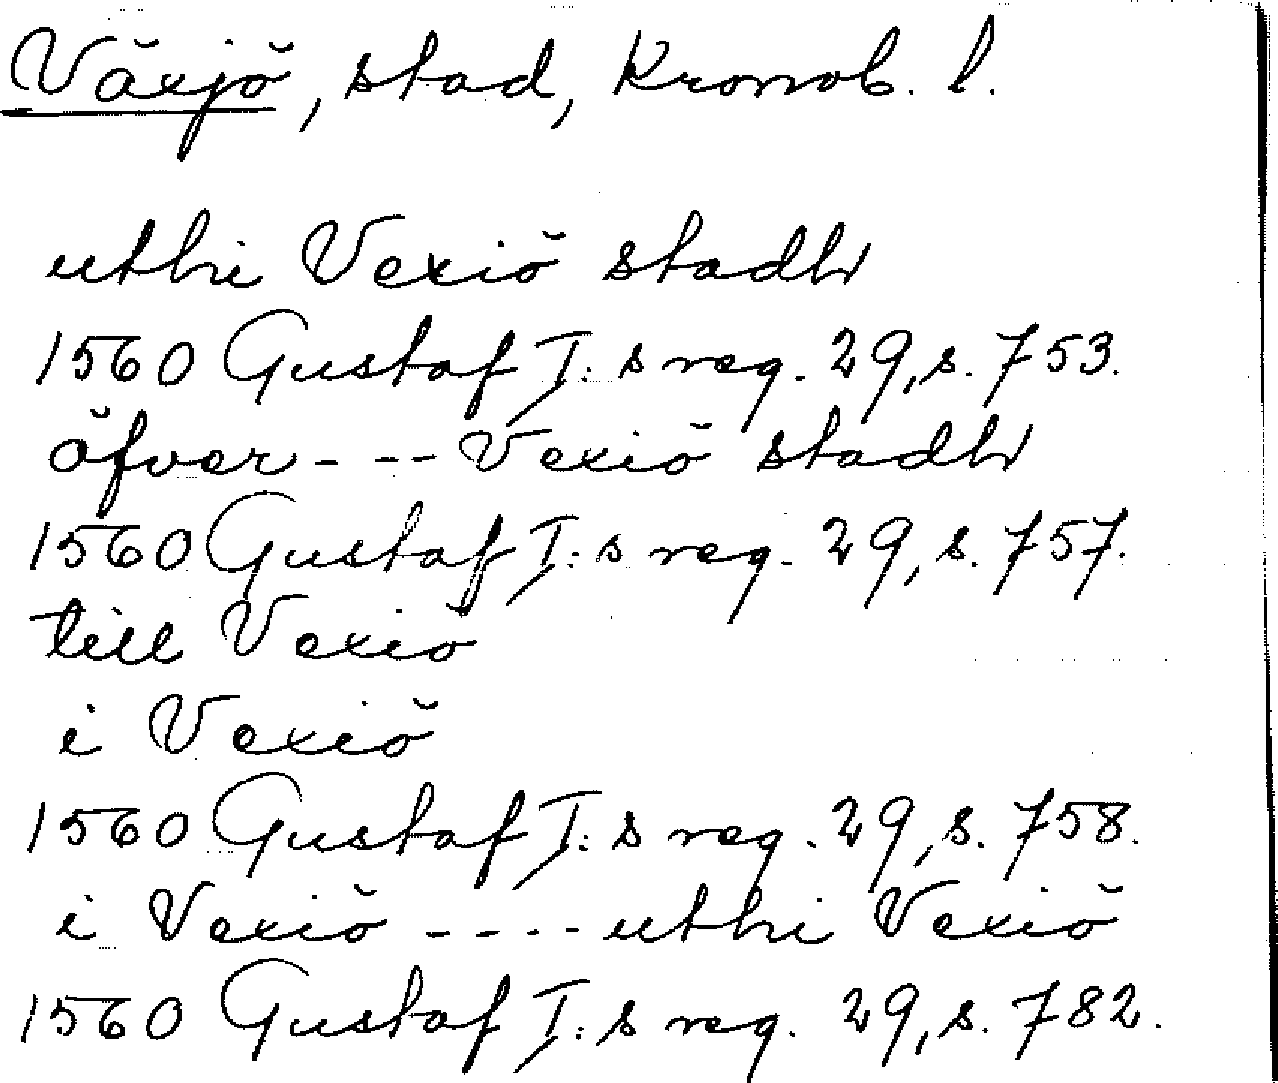 Växjö, stad, Kronob. l.
uthi Vexiö stadh
1560 Gustaf I:s reg. 29, s. 753.
öfver - - - Vexiö stadh
1560 Gustaf I:s reg. 29, s. 757.
till Vexiö
i Vexiö
1560 Gustaf I:s reg. 29, s. 758.
i Vexiö - - - - uthi Vexiö
1560 Gustaf I:s reg. 29, s. 782.